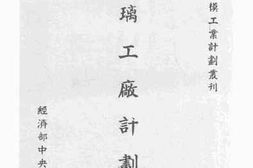 模工業計劃叢刊
璃工廠計劃
經濟部中央